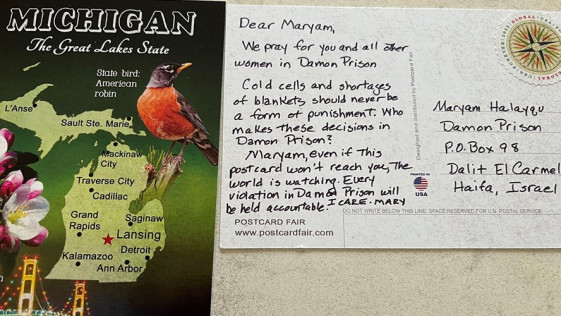 MICHIGAN
The Great Lakes State
State bird:
American
robin
L'Anse
Sault Ste. Marie
Mackinaw
City
Traverse City
Cadillac
Grand
Rapids
Saginaw
Lansing
Kalamazoo
Detroit
Ann Arbor
Dear Maryam,
We pray for you and all other
women in Damon Prison
Cold cells and shortages
of blankets should never be
a form of punishment. Who
makes these decisions in
Damon Prison?
Maryam, even if this
postcard won't reach you, the
world is watching. Every
violation in Damon Prison will
be held accountable. I CARE. MARY
POSTCARD FAIR
www.postcardfair.com
Designed and distributed by Postcard Fair
PRINTED IN
USA
GLOBAL
Maryam Halayqu
Damon Prison
P.O. Box 98
Dalit El Carmel
Haifa, Israel
DO NOT WRITE BELOW THIS LINE. SPACE RESERVED FOR U.S. POSTAL SERVICE.